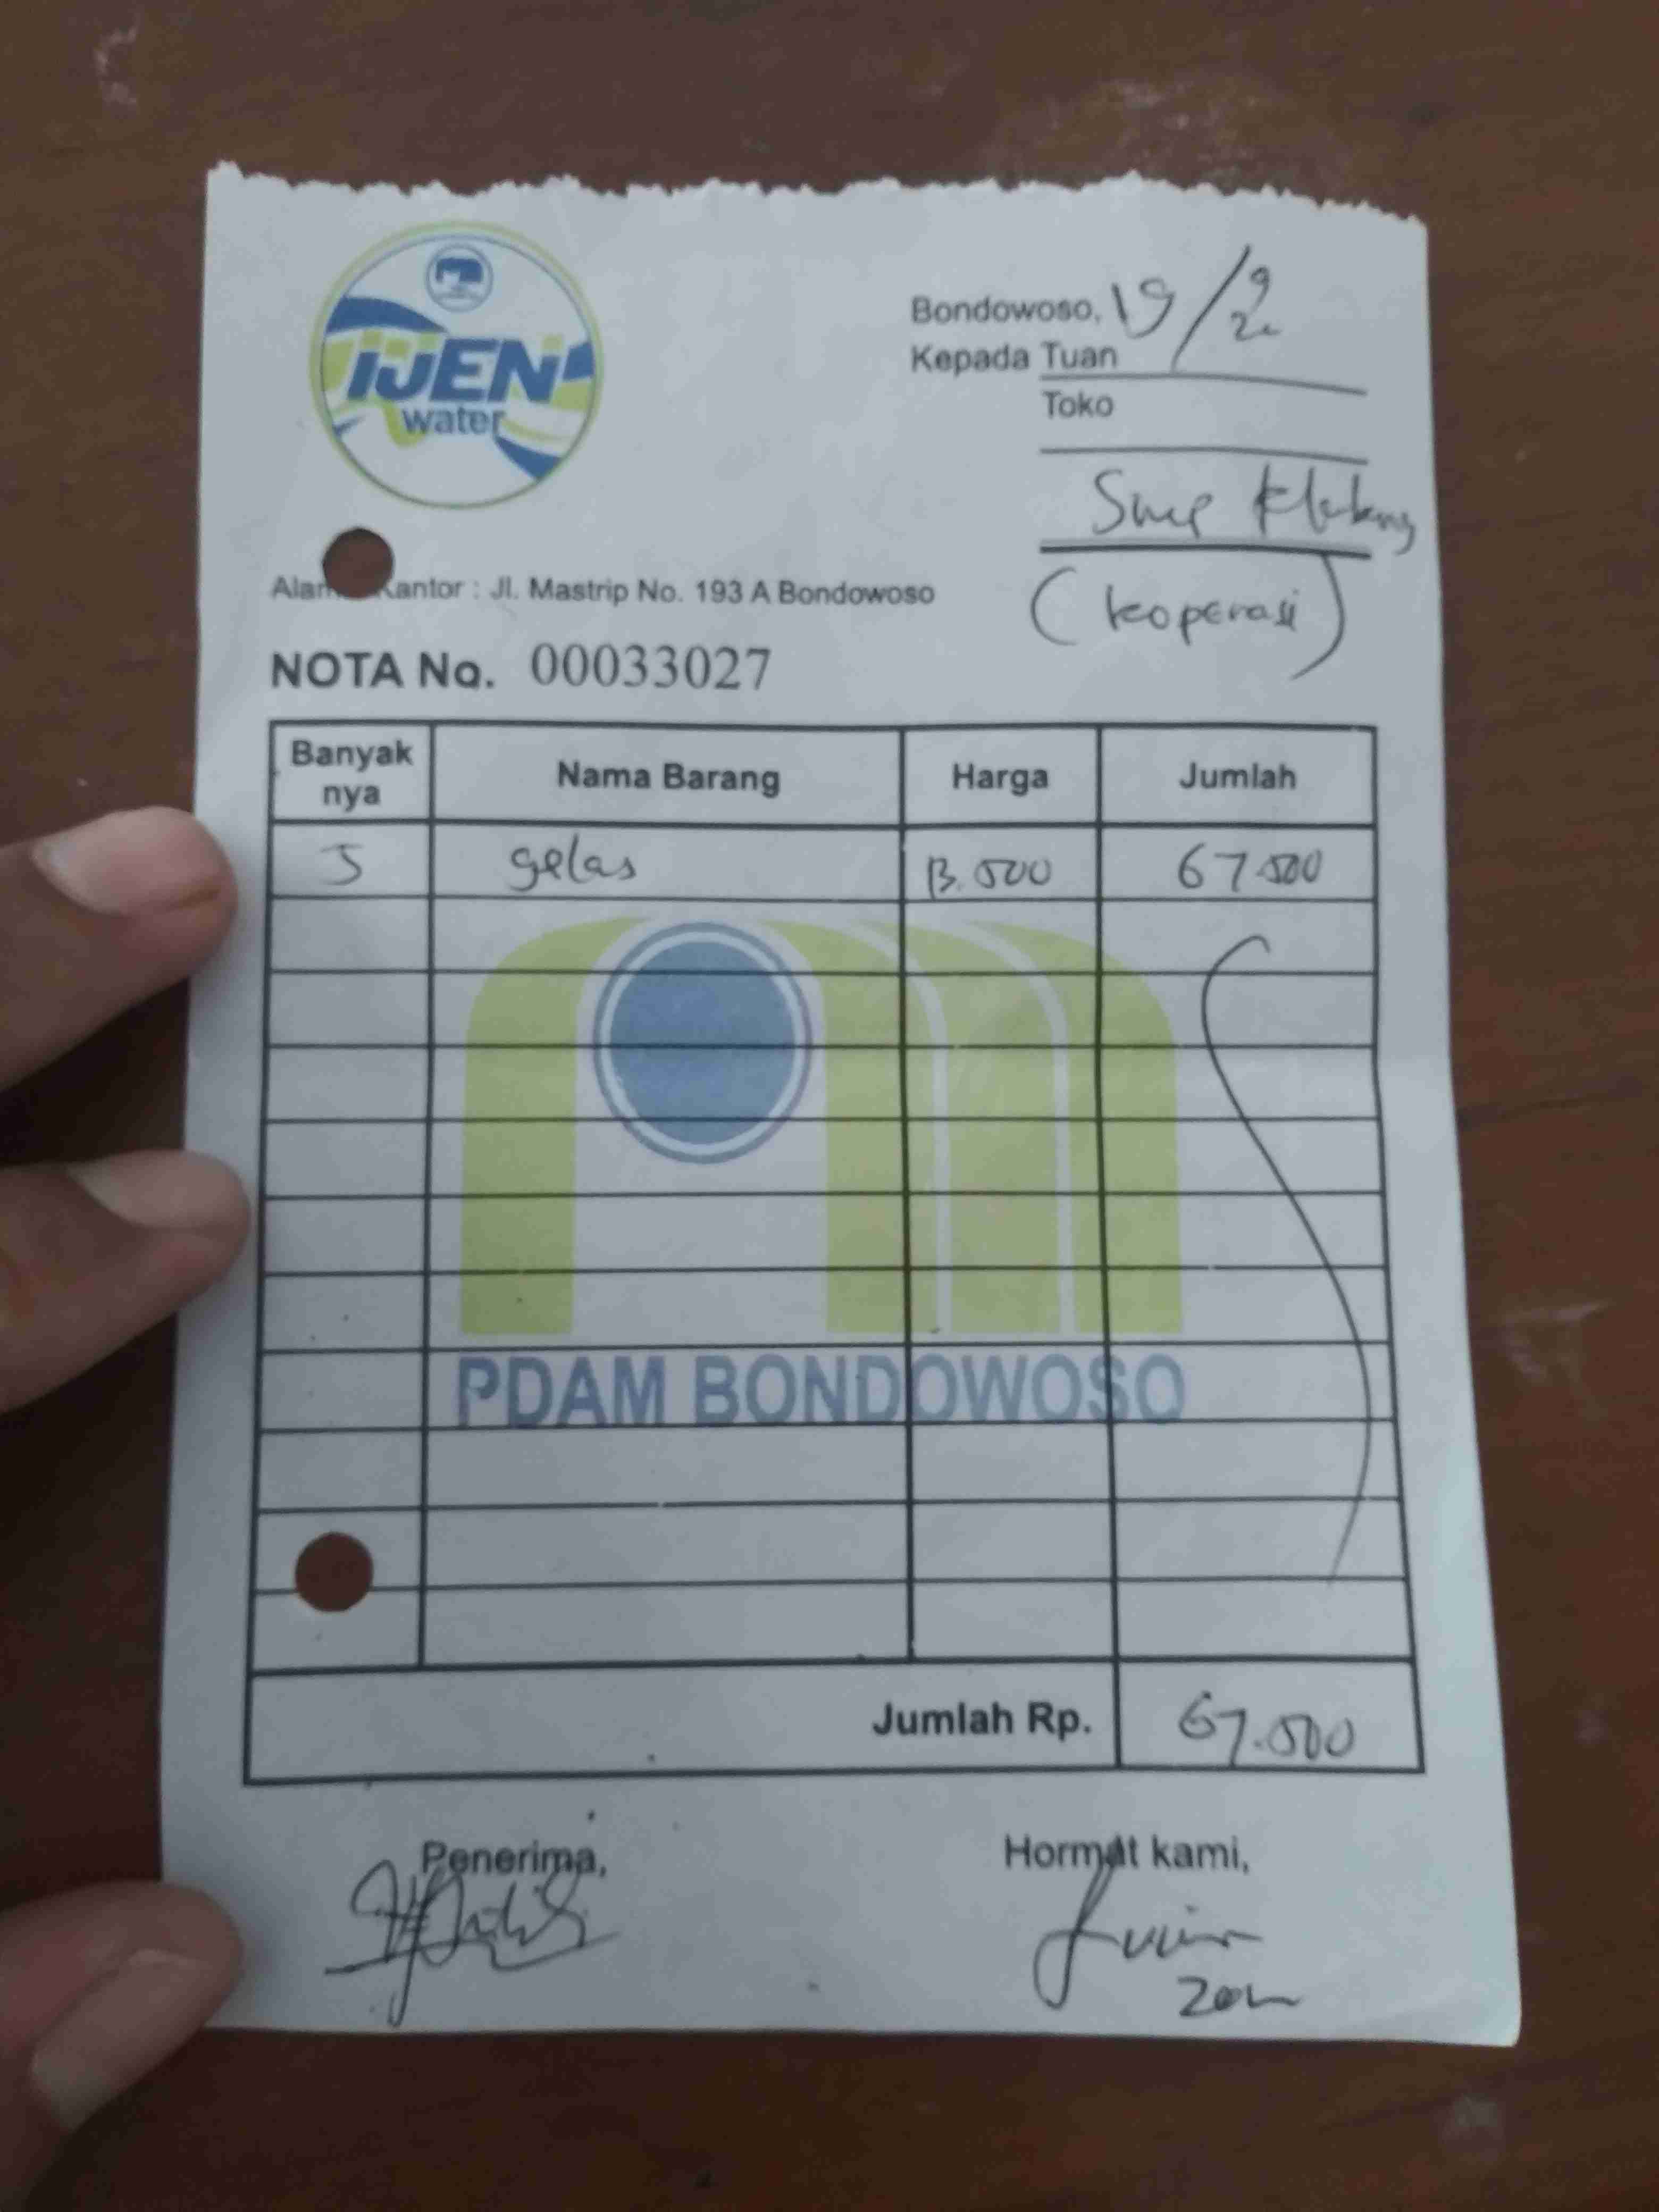 IJEN
water
Bondowoso, 19/9
Kepada Tuan
Toko
Smp Klabang
(koperasi)
Kantor : Jl. Mastrip No. 193 A Bondowoso
NOTA No. 00033027
Banyak nya Nama Barang Harga Jumlah
5 gelas 13.500 67.500
PDAM BONDOWOSO
Jumlah Rp. 67.500
Penerima, Hormat kami,